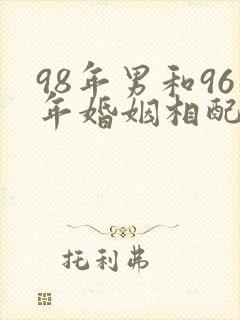 98年男和96
年婚姻相配
托利弗